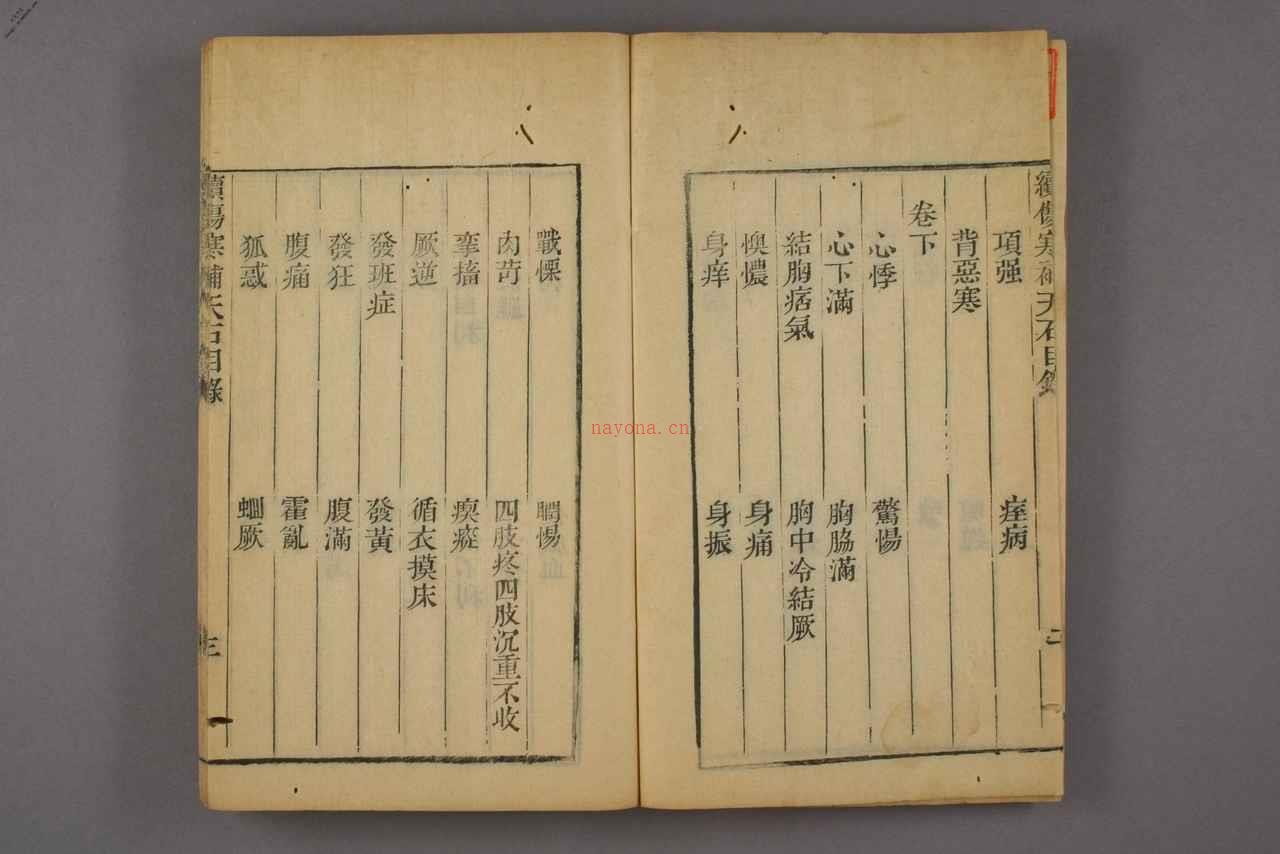 續傷寒補天石目錄
二
項强
痓病
背惡寒
卷下
心悸
驚惕
心下滿
胸脇滿
結胸痞氣
胸中冷結厥
懊憹
身痛
身痒
身振
戰慄
瞤惕
肉苛
四肢疼四肢沉重不收
拏搐
瘈瘲
厥逆
循衣摸床
發班症
發黃
發狂
腹滿
腹痛
霍亂
狐惑
蛔厥
續傷寒補天石目錄
三
nayona.cn